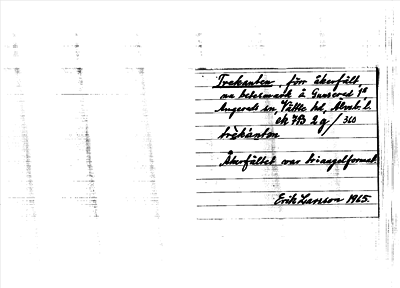 Trekanten, förr åkerfält
nu betesmark å Gunnered 1/8
Angereds sn, Vättle hd, Älvsb. l.
ek 7B 2 g/360
trekanton
Åkerfältet var triangelformat.
Erik Larsson 1965.